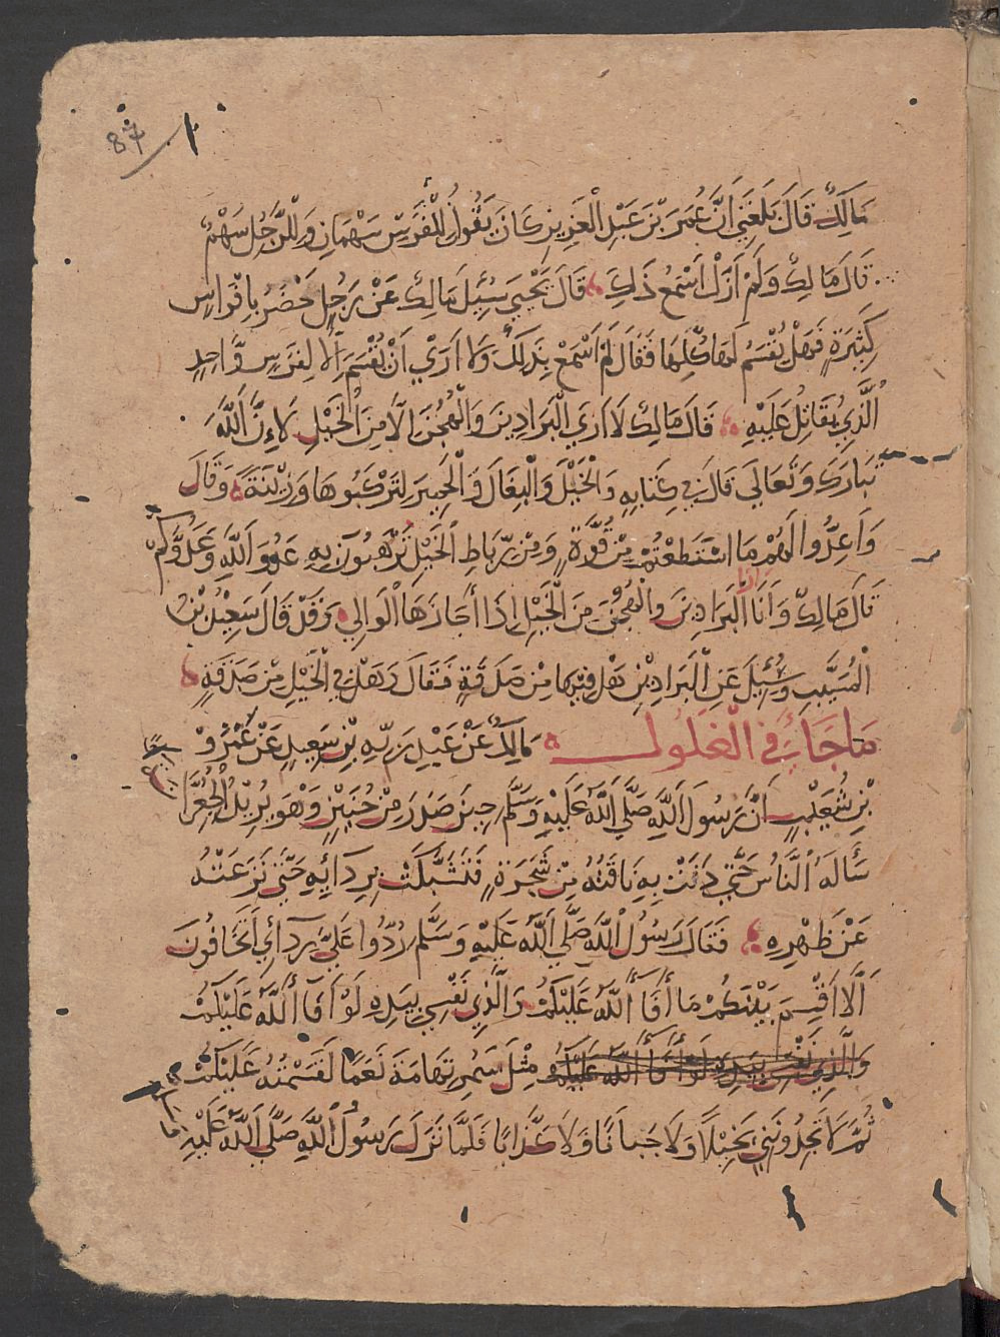 87
مَالِكٌ قَالَ بَلَغَنِي أَنَّ عُمَرَ بْنَ عَبْدِ الْعَزِيزِ كَانَ يَقُولُ لِلْفَرَسِ سَهْمَانِ وَلِلرَّجُلِ سَهْمٌ
قَالَ مَالِكٌ وَلَمْ أَزَلْ أَسْمَعُ ذَلِكَ قَالَ يَحْيَى سُئِلَ مَالِكٌ عَنْ رَجُلٍ حَضَرَ بِأَفْرَاسٍ
كَثِيرَةٍ فَهَلْ يُقْسَمُ لَهَا كُلِّهَا فَقَالَ لَمْ أَسْمَعْ بِذَلِكَ وَلَا أَرَى أَنْ يُقْسَمَ إِلَّا لِفَرَسٍ وَّاحِدٍ
الَّذِي يُقَاتِلُ عَلَيْهِ قَالَ مَالِكٌ لَا أَرَى الْبَرَاذِينَ وَالْهُجُنَ إِلَّا مِنَ الْخَيْلِ لِأَنَّ اللَّهَ
تَبَارَكَ وَتَعَالَى قَالَ فِي كِتَابِهِ وَالْخَيْلَ وَالْبِغَالَ وَالْحَمِيرَ لِتَرْكَبُوهَا وَزِينَةً وَقَالَ
وَأَعِدُّوا لَهُمْ مَا اسْتَطَعْتُمْ مِنْ قُوَّةٍ وَمِنْ رِّبَاطِ الْخَيْلِ تُرْهِبُونَ بِهِ عَدُوَّ اللَّهِ وَعَدُوَّكُمْ
قَالَ مَالِكٌ وَأَنَا الْبَرَاذِينَ وَالْهُجُنَ مِنَ الْخَيْلِ إِذَا أَجَازَهَا الْوَالِي وَقَدْ قَالَ سَعِيدُ بْنُ
الْمُسَيَّبِ وَسُئِلَ عَنِ الْبَرَاذِينِ هَلْ فِيهَا مِنْ صَدَقَةٍ فَقَالَ وَهَلْ فِي الْخَيْلِ مِنْ صَدَقَةٍ
مَا جَاءَ فِي الْغُلُولِ مَالِكٌ عَنْ عَبْدِ رَبِّهِ بْنِ سَعِيدٍ عَنْ عَمْرِو
بْنِ شُعَيْبٍ أَنَّ رَسُولَ اللَّهِ صَلَّى اللَّهُ عَلَيْهِ وَسَلَّمَ حِينَ صَدَرَ مِنْ حُنَيْنٍ وَهُوَ يُرِيدُ الْجِعْرَّا
سَأَلَهُ النَّاسُ حَتَّى دَنَتْ بِهِ نَاقَتُهُ مِنْ شَجَرَةٍ فَتَشَبَّكَتْ بِرِدَائِهِ حَتَّى نَزَعَتْهُ
عَنْ ظَهْرِهِ فَقَالَ رَسُولُ اللَّهِ صَلَّى اللَّهُ عَلَيْهِ وَسَلَّمَ رُدُّوا عَلَيَّ رِدَائِي أَتَخَافُونَ
أَلَّا أَقْسِمَ بَيْنَكُمْ مَا أَفَاءَ اللَّهُ عَلَيْكُمْ وَالَّذِي نَفْسِي بِيَدِهِ لَوْ أَفَاءَ اللَّهُ عَلَيْكُمْ
وَالَّذِي نَفْسِي بِيَدِهِ لَوْ أَفَاءَ اللَّهُ عَلَيْكُمْ مِثْلَ سَمُرِ تِهَامَةَ نَعَمًا لَقَسَمْتُهُ عَلَيْكُمْ
ثُمَّ لَا تَجِدُونَنِي بَخِيلًا وَلَا جَبَانًا وَلَا كَذَّابًا فَلَمَّا نَزَلَ رَسُولُ اللَّهِ صَلَّى اللَّهُ عَلَيْهِ